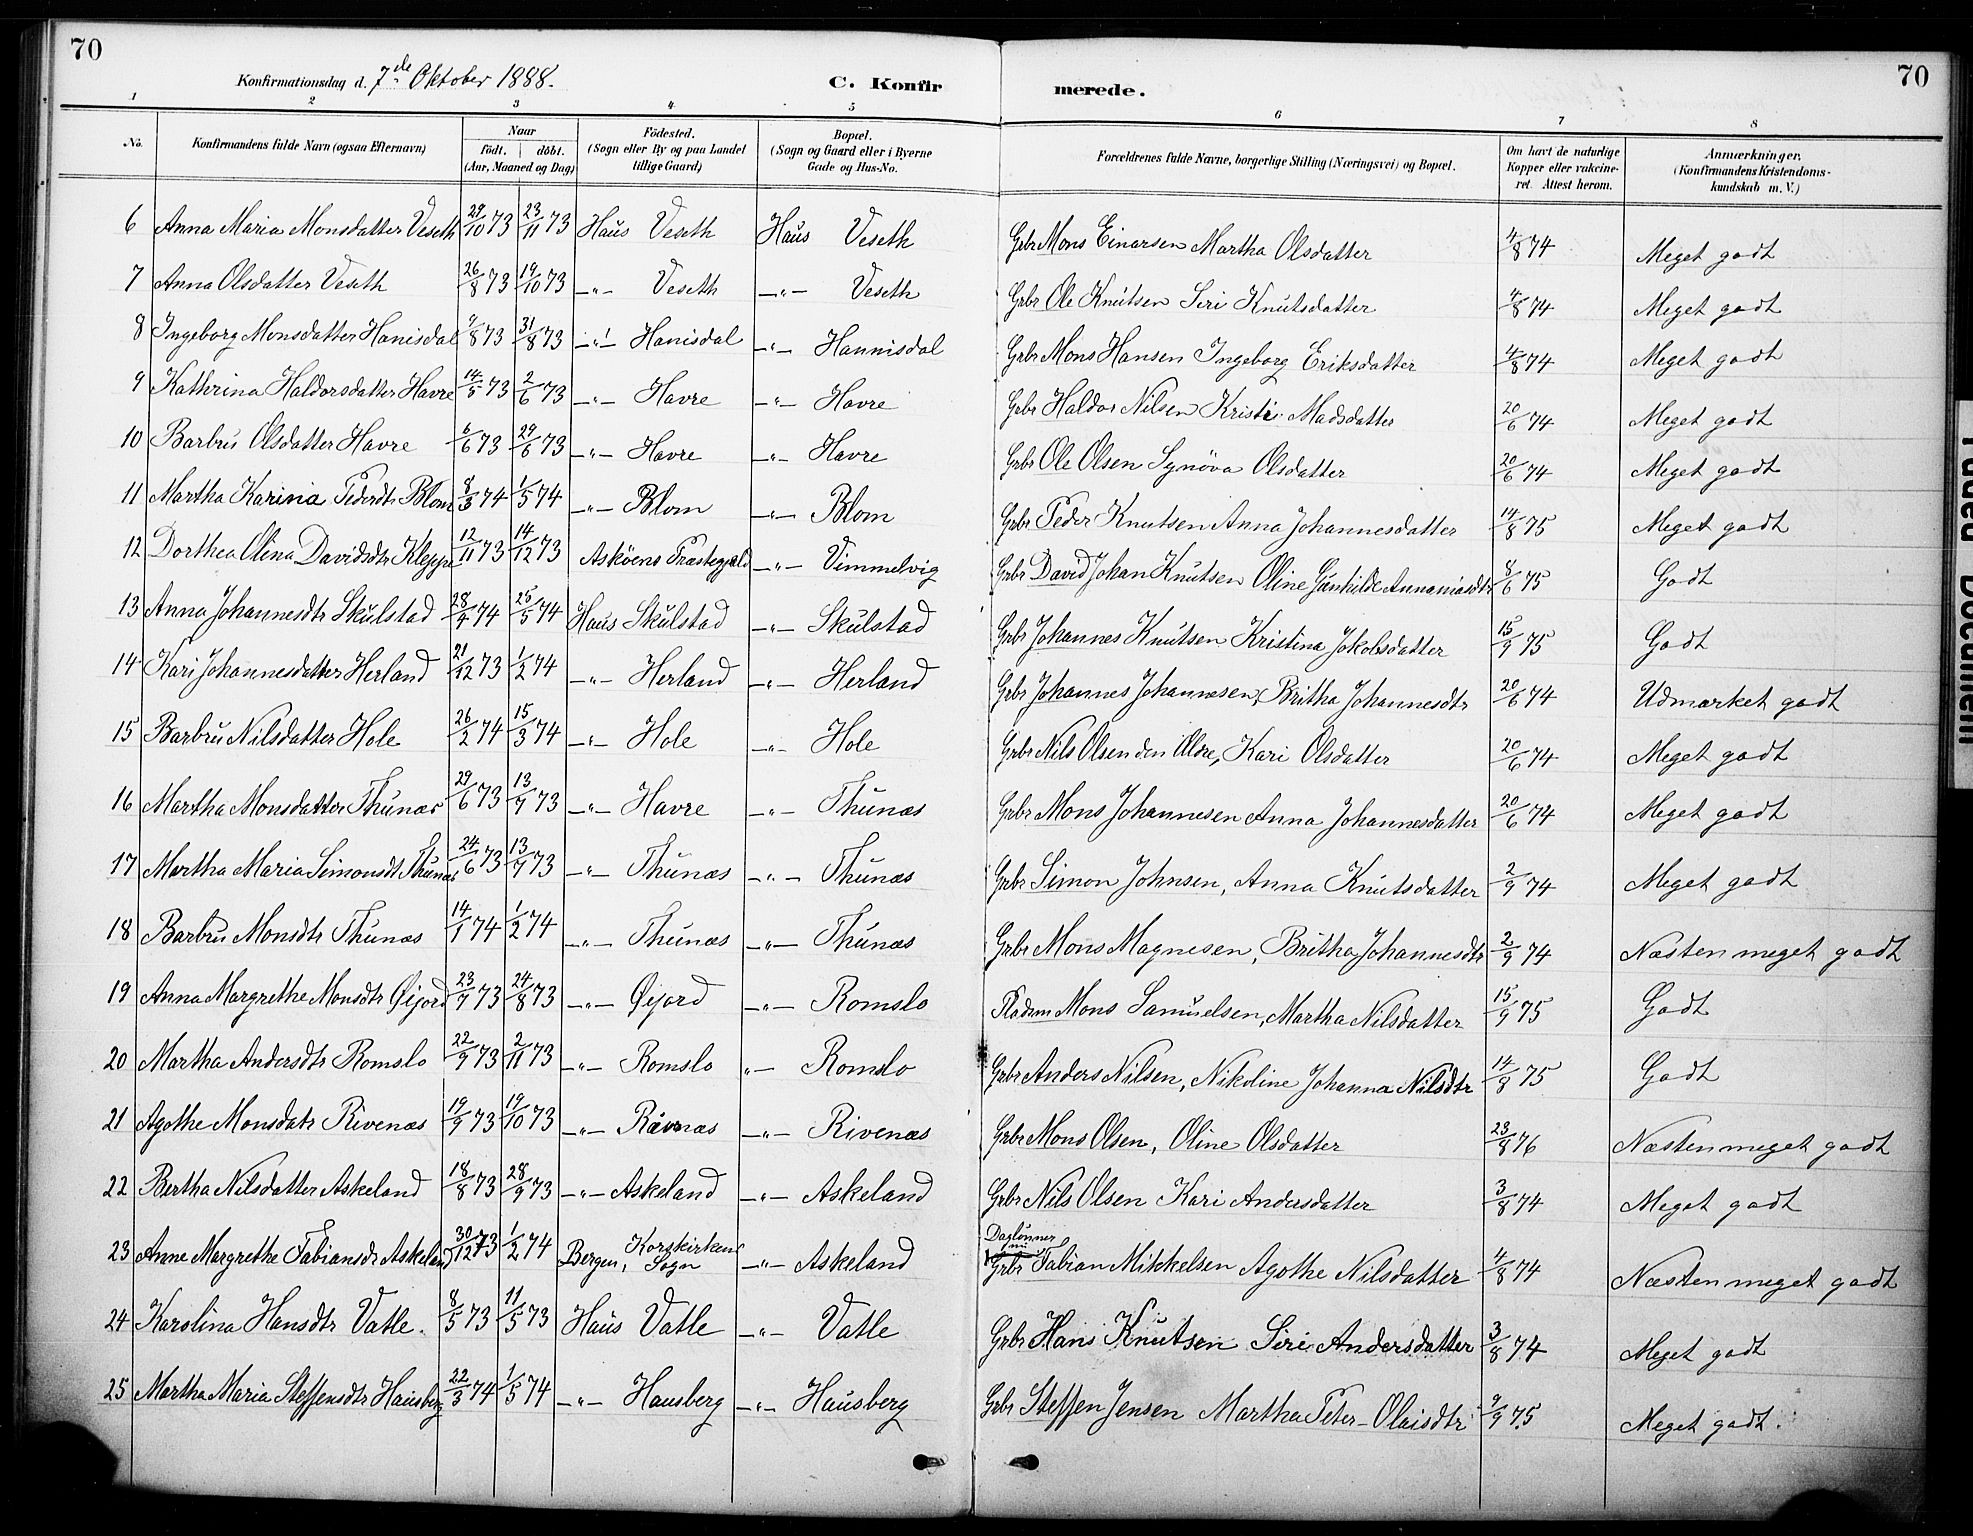 70
70
Konfirmationsdag d. 7de Oktober 1888.
C. Konfirmerede.
1 2 3 4 5 6 7 8
No. | Konfirmandens fulde Navn (ogsaa Efternavn) | Naar født. døbt. (Aar, Maaned og Dag) | Fødested. (Sogn eller By og paa Landet tillige Gaard) | Bopæl. (Sogn og Gaard eller i Byerne Gade og Hus-No. | Forældrenes fulde Navne, borgerlige Stilling (Næringsvei) og Bopæl. | Om havt de naturlige Kopper eller vakcineret. Attest herom. | Anmærkninger. (Konfirmandens Kristendomskundskab m. V.)
6 Anna Maria Monsdatter Veseth 29/10 73 23/11 73 Haus Veseth Haus Veseth Grbr Mons Einarsen Martha Olsdatter 4/8 74 Meget godt
7 Anna Olsdatter Veseth 26/8 73 19/10 73 -"- Veseth -"- Veseth Grbr Ole Knutsen Seri Knutsdatter 4/8 74 Meget godt
8 Ingeborg Monsdatter Hanisdal 9/8 73 31/8 73 -"- Hanisdal -"- Hannisdal Grbr Mons Hansen Ingeborg Eriksdatter 4/8 74 Meget godt
9 Kathrina Haldorsdatter Havre 14/5 73 2/6 73 -"- Havre -"- Havre Grbr Haldor Nilsen Kristi Madsdatter 20/6 74 Meget godt
10 Barbru Olsdatter Havre 6/6 73 29/6 73 -"- Havre -"- Havre Grbr Ole Olsen Synöva Olsdatter 20/6 74 Meget godt
11 Martha Karina Pedersdtr Blom 8/3 74 1/5 74 -"- Blom -"- Blom Grbr Peder Knutsen Anna Johannesdatter 14/8 75 Meget godt
12 Dorthea Olina Davidsdtr Kleppe 12/11 73 14/12 73 Asköens Præstegjæld -"- Vimmelvig Grbr David Johan Knutsen Oline Gunhilde Annaniasdtr 8/6 75 Godt
13 Anna Johannesdtr Skulstad 28/4 74 25/5 74 Haus Skulstad -"- Skulstad Grbr Johannes Knutsen Kristina Jakobsdatter 15/9 75 Godt
14 Kari Johannesdatter Herland 21/12 73 1/2 74 -"- Herland -"- Herland Grbr Johannes Johannesen, Britha Johannesdtr 20/6 74 Udmærket godt
15 Barbru Nilsdatter Hole 26/2 74 15/3 74 -"- Hole -"- Hole Grbr Nils Olsen den Ældre, Kari Olsdatter 20/6 74 Meget godt
16 Martha Monsdatter Thunæs 29/6 73 13/7 73 -"- Havre -"- Thunæs Grbr Mons Johannesen Anna Johannesdatter 20/6 74 Meget godt
17 Martha Maria Simonsdt Thunæs 24/6 73 13/7 73 -"- Thunæs -"- Thunæs Grbr Simon Johnsen, Anna Knutsdatter 2/9 74 Meget godt
18 Barbru Monsdtr Thunæs 14/1 74 1/2 74 -"- Thunæs -"- Thunæs Grbr Mons Magnesen, Britha Johannesdtr 2/9 74 Næsten meget godt
19 Anna Margrethe Monsdtr Øijord 23/7 73 24/8 73 -"- Øijord -"- Romslo Pladsm Mons Samuelsen, Martha Nilsdatter 15/9 75 Godt
20 Martha Andersdtr Romslo 22/9 73 2/11 73 -"- Romslo "- Romslo Grbr Anders Nilsen, Nikoline Johanna Nilsdtr 14/8 75 Godt
21 Agothe Monsdatr Rivenæs 19/9 73 19/10 73 -"- Rivnæs -"- Rivenæs Grbr Mons Olsen, Oline Olsdatter 23/8 76 Næsten meget godt
22 Bertha Nilsdatter Askeland 18/8 73 28/9 73 -"- Askeland -"- Askeland Grbr Nils Olsen Kari Andersdatter 3/8 74 Meget godt
23 Anne Margrethe Fabiansdr Askeland 30/12 73 1/2 74 Bergen, Korskirkens Sogn -"- Askeland Daglønner Grbr Fabian Mikkelsen Agothe Nilsdatter 4/8 74 Næsten meget godt
24 Karolina Hansdtr Vatle. 8/5 73 11/5 73 Haus Vatle -"- Vatle Grbr Hans Knutsen Seri Andersdatter 3/8 74 Meget godt
25 Martha Maria Steffensdtr Hausberg 22/3 74 1/5 74 -"- Hausberg -"- Hausberg Grbr Steffen Jensen Martha Peter-Olaisdtr 9/9 75 Meget godt.